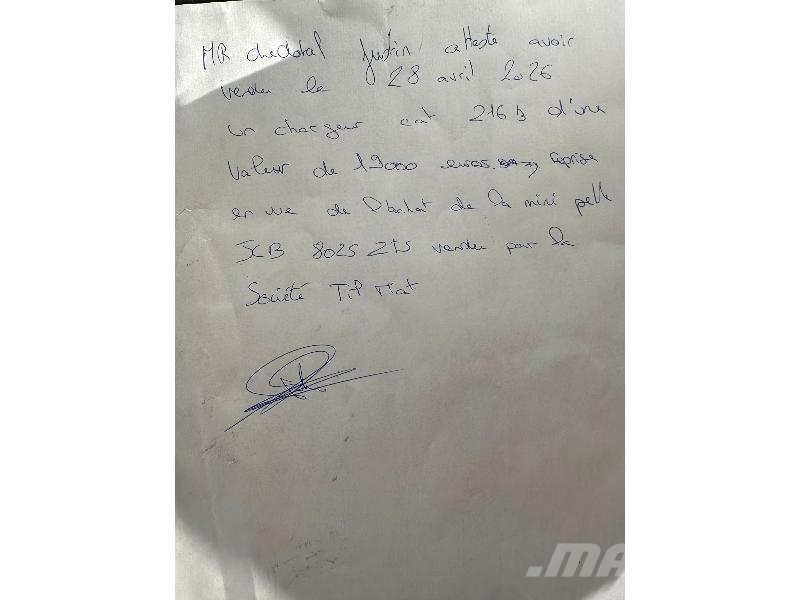 MR Justin atteste avoir
vendu le 28 avril 2026
un chargeur cat 216 B d'une
valeur de 19000 euros reprise
en vue de l'achat de la mini pelle
JCB 8025 ZTS vendu par la
Société Tip Mat
.MA